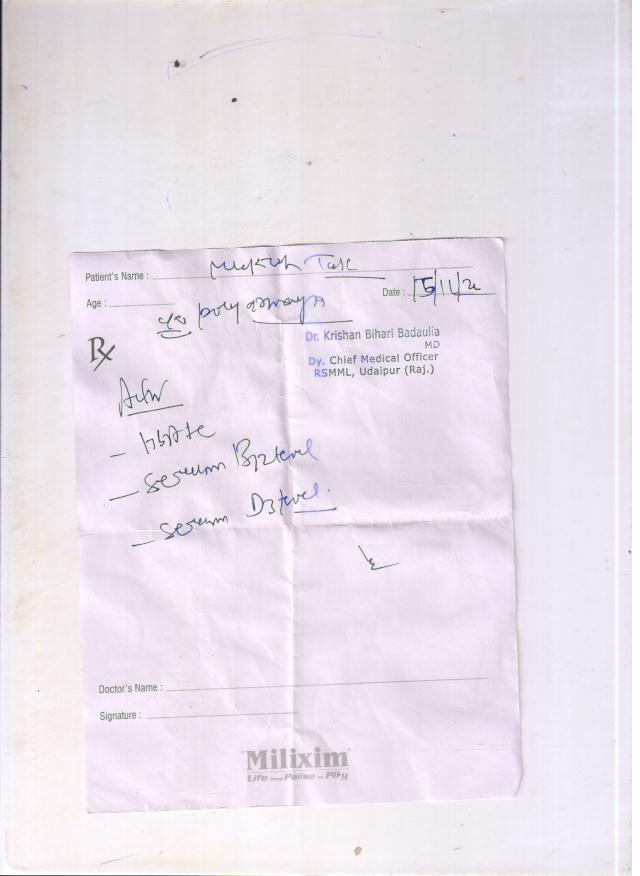 Patient's Name : Mukesh Tak
Age :
Date : 15/11/2
c/o poly
Dr. Krishan Bihari Badaulia
MD
Dy. Chief Medical Officer
RSMML, Udaipur (Raj.)
Rx
Adv
- HbA1c
- Serum B12 level
- Serum D3 level.
Doctor's Name :
Signature :
Milixim
Life from Pulse to Play